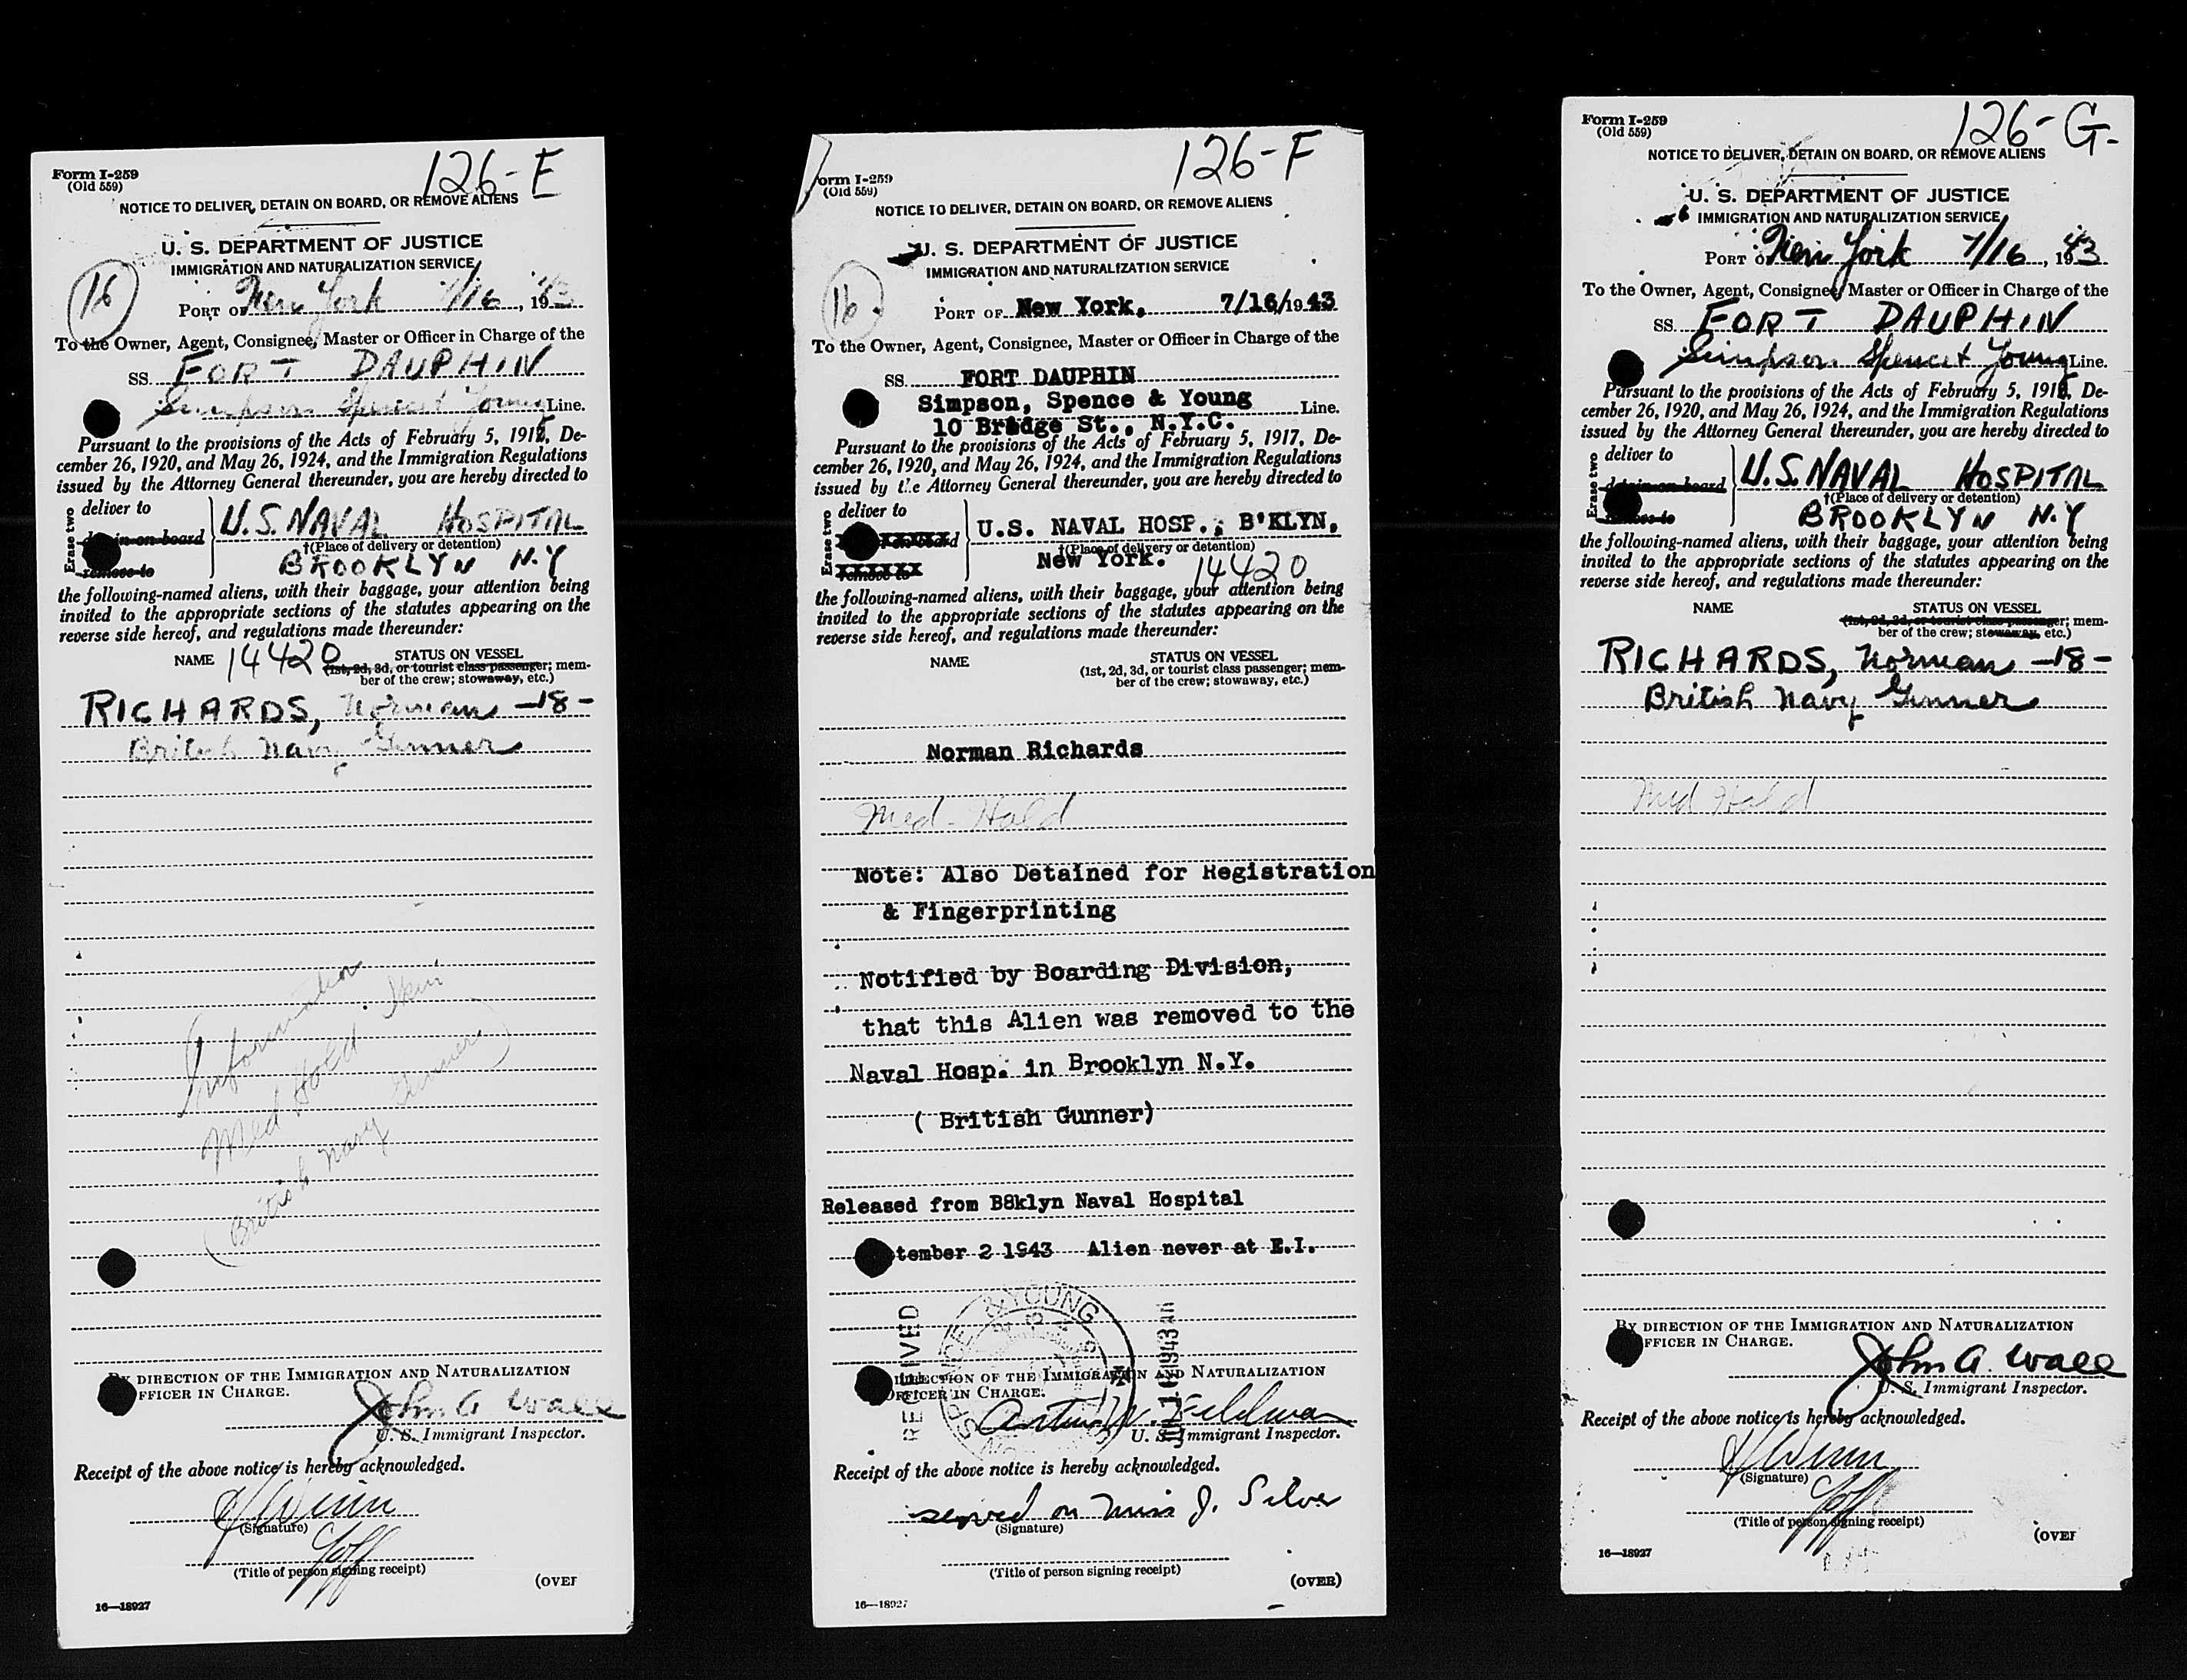 Form I-259
(Old 559)
126-E
NOTICE TO DELIVER, DETAIN ON BOARD, OR REMOVE ALIENS
U. S. DEPARTMENT OF JUSTICE
IMMIGRATION AND NATURALIZATION SERVICE
16
PORT OF New York 7/16, 1943
To the Owner, Agent, Consignee, Master or Officer in Charge of the
SS. FORT DAUPHIN
Simpson Spence & Young Line.
Pursuant to the provisions of the Acts of February 5, 1917, De-
cember 26, 1920, and May 26, 1924, and the Immigration Regulations
issued by the Attorney General thereunder, you are hereby directed to
Erase two
deliver to
in on board
remove to
U.S. NAVAL HOSPITAL
†(Place of delivery or detention)
BROOKLYN N.Y
the following-named aliens, with their baggage, your attention being
invited to the appropriate sections of the statutes appearing on the
reverse side hereof, and regulations made thereunder:
NAME 14420 STATUS ON VESSEL
(1st, 2d, 3d, or tourist class passenger; mem-
ber of the crew; stowaway, etc.)
RICHARDS, Norman -18-
British Navy Gunner
Information
Med Hold
(British Navy Gunner)
BY DIRECTION OF THE IMMIGRATION AND NATURALIZATION
OFFICER IN CHARGE.
John A Wall
U. S. Immigrant Inspector.
Receipt of the above notice is hereby acknowledged.
(Signature)
(Title of person signing receipt)
(OVER
16—18927
Form I-259
(Old 559)
126-F
NOTICE TO DELIVER, DETAIN ON BOARD, OR REMOVE ALIENS
U. S. DEPARTMENT OF JUSTICE
IMMIGRATION AND NATURALIZATION SERVICE
16.
PORT OF New York, 7/16/1943
To the Owner, Agent, Consignee, Master or Officer in Charge of the
SS. FORT DAUPHIN
Simpson, Spence & Young Line.
10 Bridge St., N.Y.C.
Pursuant to the provisions of the Acts of February 5, 1917, De-
cember 26, 1920, and May 26, 1924, and the Immigration Regulations
issued by the Attorney General thereunder, you are hereby directed to
Erase two
deliver to
board
remove to
U.S. NAVAL HOSP., B'KLYN,
†(Place of delivery or detention)
New York. 14420
the following-named aliens, with their baggage, your attention being
invited to the appropriate sections of the statutes appearing on the
reverse side hereof, and regulations made thereunder:
NAME STATUS ON VESSEL
(1st, 2d, 3d, or tourist class passenger; mem-
ber of the crew; stowaway, etc.)
Norman Richards
Med-Hold
Note: Also Detained for Registration
& Fingerprinting
Notified by Boarding Division,
that this Alien was removed to the
Naval Hosp. in Brooklyn N.Y.
( British Gunner)
Released from B8klyn Naval Hospital
tember 2 1943 Alien never at E.I.
RECEIVED
SPENCE & YOUNG
JUL 16 1943
DIRECTION OF THE IMMIGRATION AND NATURALIZATION
OFFICER IN CHARGE.
Arthur W. Feldman
U. S. Immigrant Inspector.
Receipt of the above notice is hereby acknowledged.
served on Miss J. Silver
(Signature)
(Title of person signing receipt)
(OVER)
16—18927
Form I-259
(Old 559)
126-G-
NOTICE TO DELIVER, DETAIN ON BOARD, OR REMOVE ALIENS
U. S. DEPARTMENT OF JUSTICE
IMMIGRATION AND NATURALIZATION SERVICE
PORT OF New York 7/16, 1943
To the Owner, Agent, Consignee, Master or Officer in Charge of the
SS. FORT DAUPHIN
Simpson Spence & Young Line.
Pursuant to the provisions of the Acts of February 5, 1917, De-
cember 26, 1920, and May 26, 1924, and the Immigration Regulations
issued by the Attorney General thereunder, you are hereby directed to
Erase two
deliver to
detain on board
remove to
U.S. NAVAL HOSPITAL
†(Place of delivery or detention)
BROOKLYN N.Y
the following-named aliens, with their baggage, your attention being
invited to the appropriate sections of the statutes appearing on the
reverse side hereof, and regulations made thereunder:
NAME STATUS ON VESSEL
(1st, 2d, 3d, or tourist class passenger; mem-
ber of the crew; stowaway, etc.)
RICHARDS, Norman -18-
British Navy Gunner
Med Hold
BY DIRECTION OF THE IMMIGRATION AND NATURALIZATION
OFFICER IN CHARGE.
John A. Wall
U. S. Immigrant Inspector.
Receipt of the above notice is hereby acknowledged.
(Signature)
(Title of person signing receipt)
(OVER
16—18927